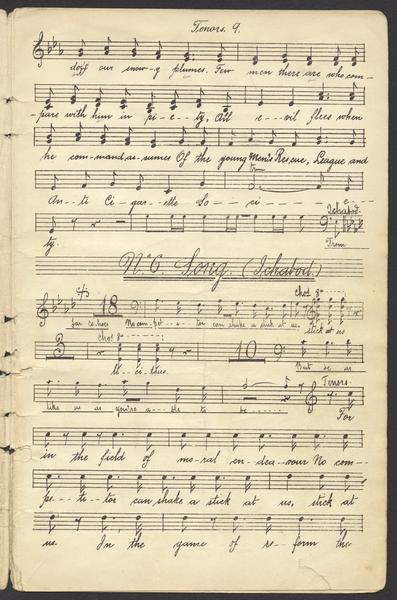 Tenors. 9.
doff our snow-y plumes. Few men there are who com-
pare with him in pi-e-ty, All e-vil flees when
he com-mand as-sumes Of the young Men's Rescue, League and
An-ti Ci-gar-ette So-ci-e-
Ichabod.
ty. From
No. 6. Song. (Ichabod.)
18 Cho! 8
No com-pet-i-tor can shake a stick at us, stick at us
3 cho! 8 10
But be as
like us as you're a-ble to be Tenors.
For
in the field of mo-ral en-dea-vour No com-
pe-ti-tor can shake a stick at us, stick at
us. In the game of re-form the